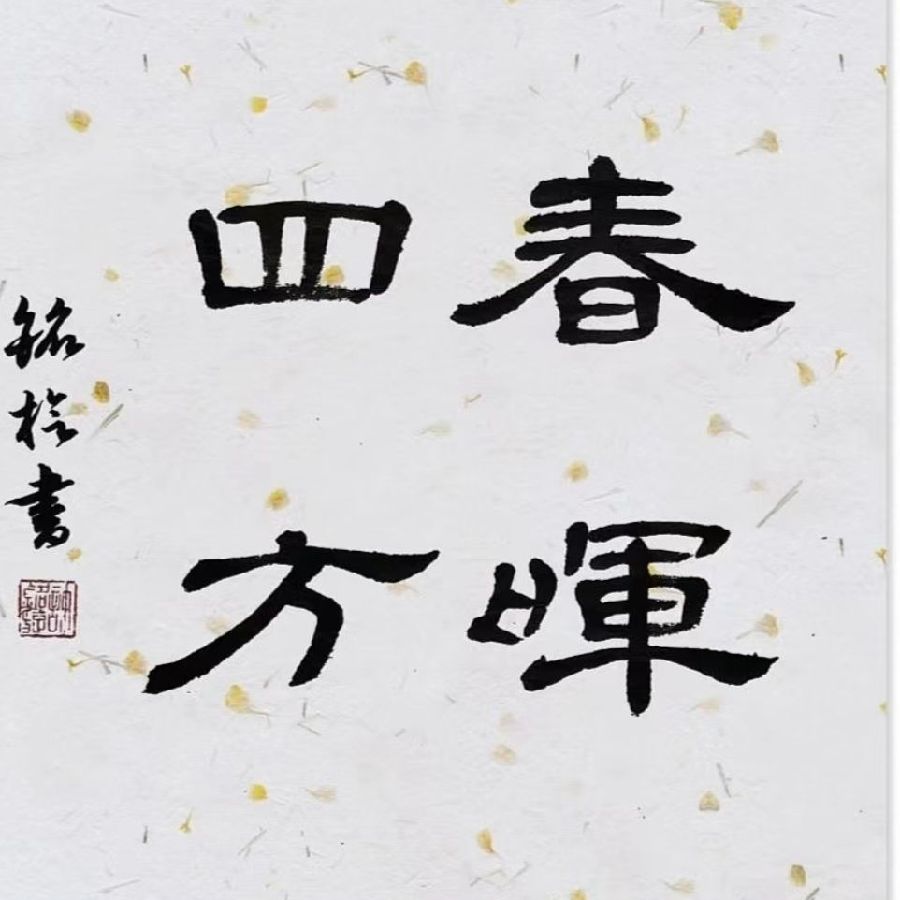 春暉
四方
銘書